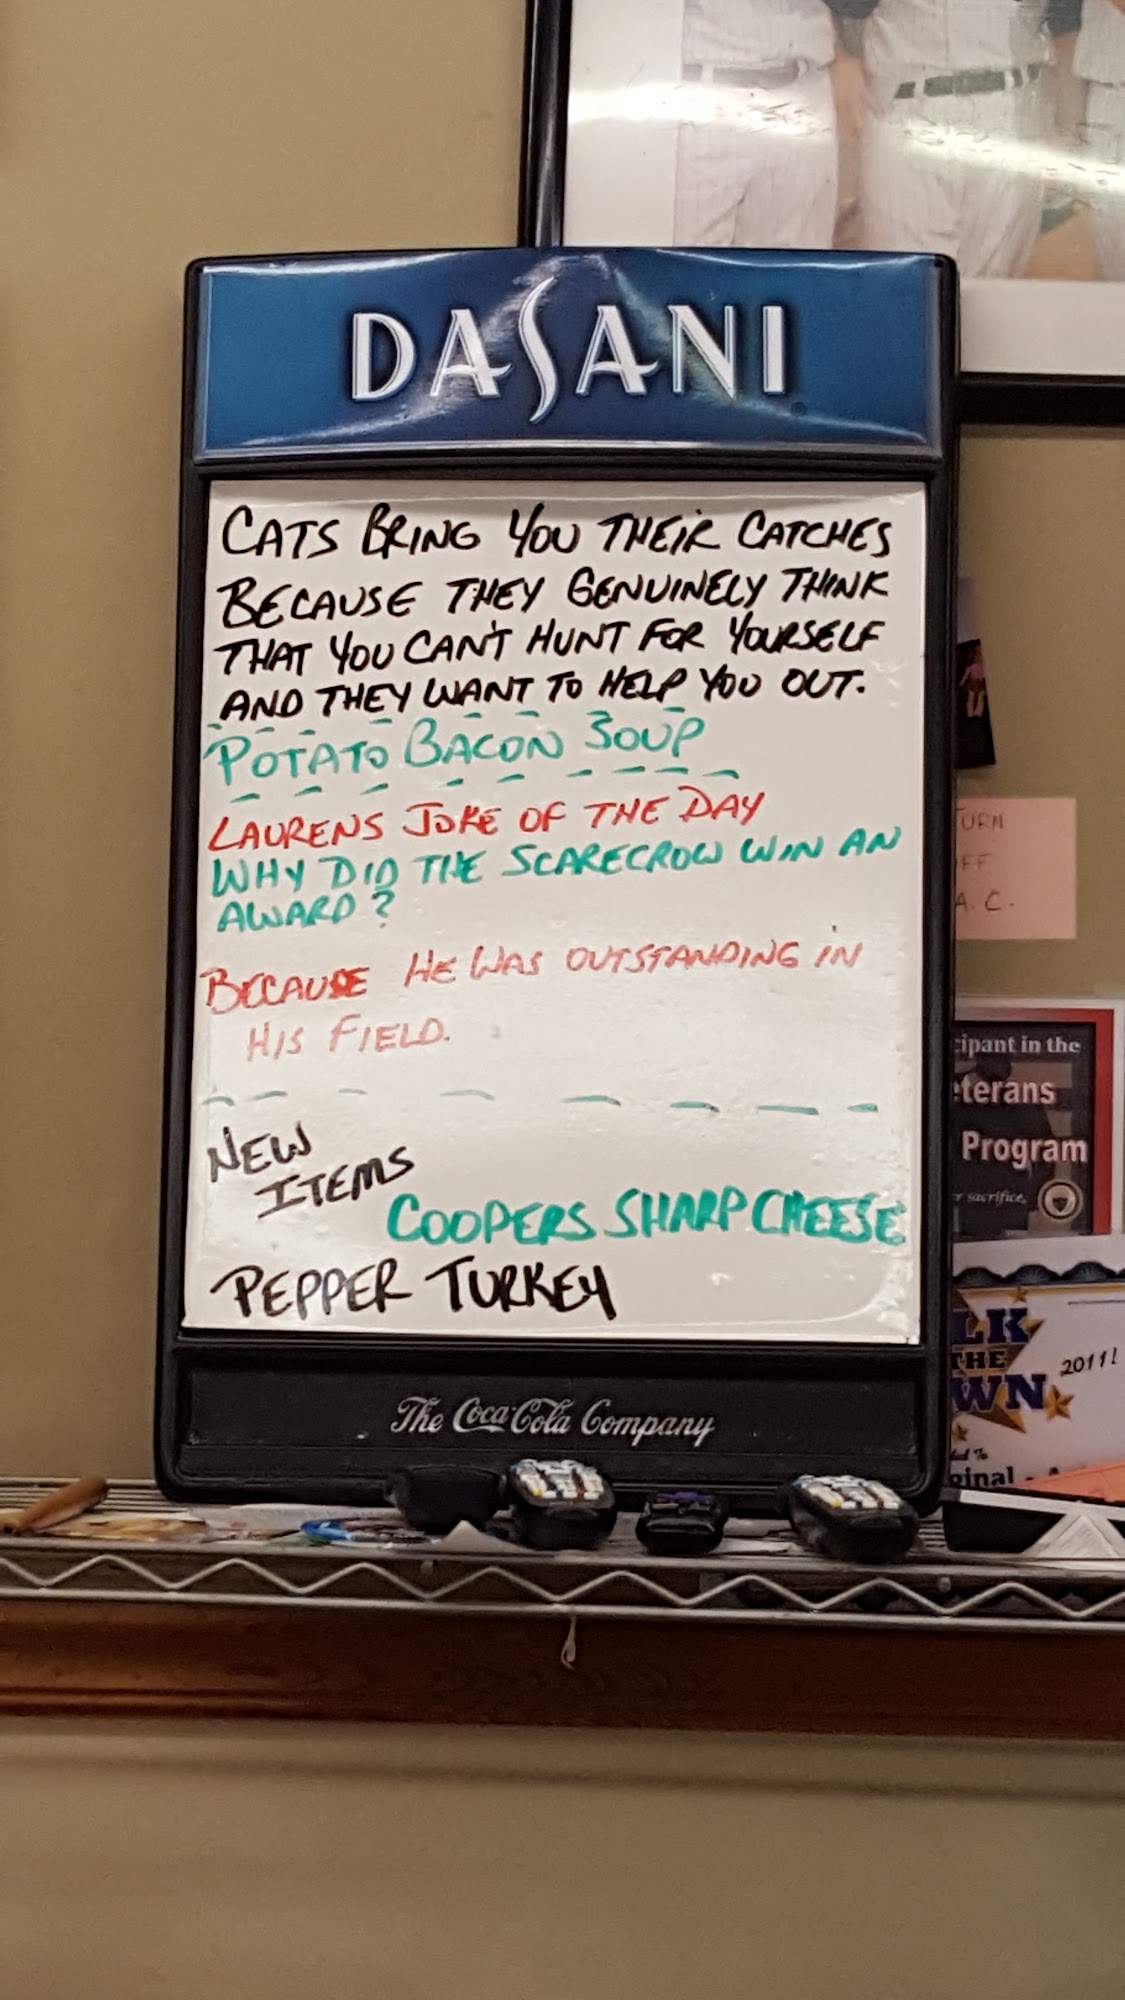 DASANI
CATS BRING YOU THEIR CATCHES
BECAUSE THEY GENUINELY THINK
THAT YOU CAN'T HUNT FOR YOURSELF
AND THEY WANT TO HELP YOU OUT.
POTATO BACON SOUP
LAURENS JOKE OF THE DAY
WHY DID THE SCARECROW WIN AN
AWARD?
BECAUSE HE WAS OUTSTANDING IN
HIS FIELD.
NEW
ITEMS
COOPERS SHARP CHEESE
PEPPER TURKEY
The Coca-Cola Company
URN
FF
A.C.
cipant in the
eterans
Program
sacrifice,
LK
THE
WN
2011!
ginal